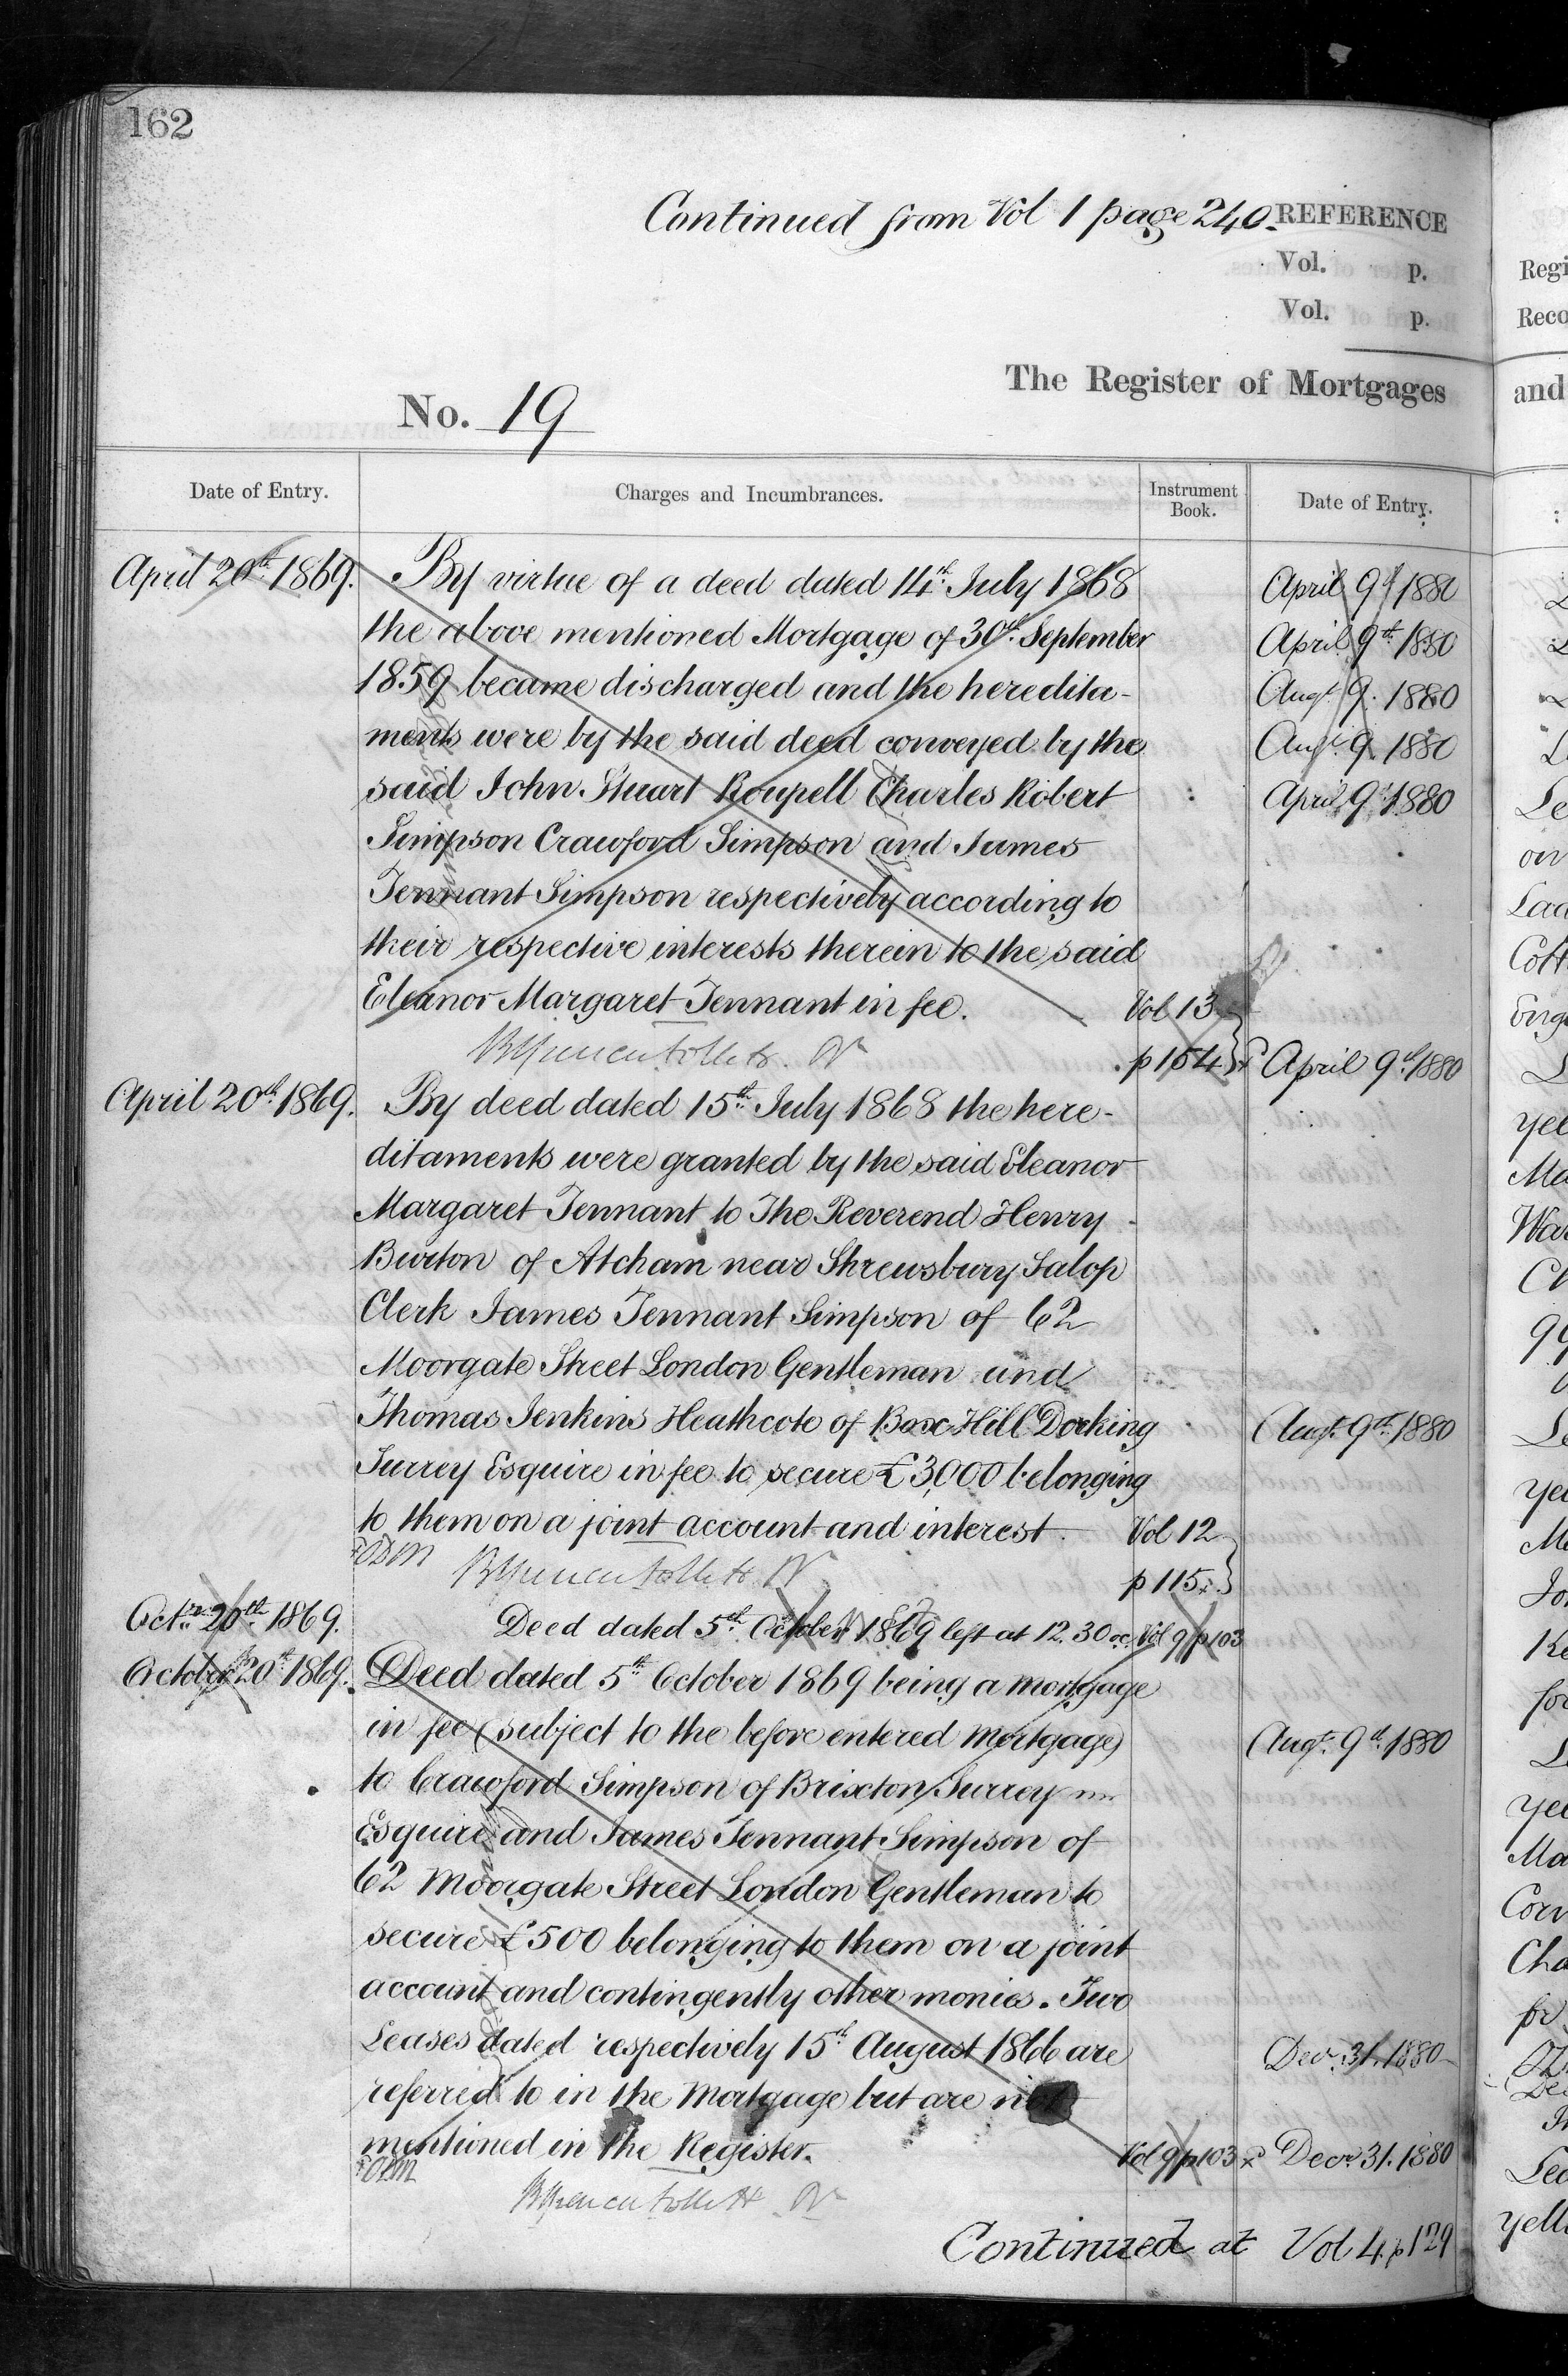 162
Continued from Vol 1 page 240.
REFERENCE
Vol. p.
Vol. p.
The Register of Mortgages
No. 19
Date of Entry. Charges and Incumbrances. Instrument Book. Date of Entry.
April 20th 1869. By virtue of a deed dated 14th July 1868
the above mentioned Mortgage of 30th September
1859 became discharged and the heredita-
ments were by the said deed conveyed by the
said John Stuart Roupell Charles Robert
Simpson Crawford Simpson and James
Tennant Simpson respectively according to
their respective interests therein to the said
Eleanor Margaret Tennant in fee. Vol 13
p 154
April 20th 1869. By deed dated 15th July 1868 the here-
ditaments were granted by the said Eleanor
Margaret Tennant to The Reverend Henry
Burton of Atcham near Shrewsbury Salop
Clerk James Tennant Simpson of 62
Moorgate Street London Gentleman and
Thomas Jenkins Heathcote of Box Hill Dorking
Surrey Esquire in fee to secure £3,000 belonging
to them on a joint account and interest. Vol 12
p 115
Octr 20th 1869. Deed dated 5th October 1869 left at 12.30 oc Vol 9 p 103
October 20th 1869. Deed dated 5th October 1869 being a mortgage
in fee (subject to the before entered Mortgage)
to Crawford Simpson of Brixton Surrey
Esquire and James Tennant Simpson of
62 Moorgate Street London Gentleman to
secure £500 belonging to them on a joint
account and contingently other monies. Two
Leases dated respectively 15th August 1866 are
referred to in the Mortgage but are not
mentioned in the Register. Vol 9 p 103
April 9th 1880
April 9th 1880
Augt 9. 1880
Augt 9. 1880
April 9th 1880
April 9th 1880
Augt 9th 1880
Augt 9th 1880
Decr 31. 1880
Decr 31. 1880
Continued at Vol 4 p 129
Regi
Reco
and